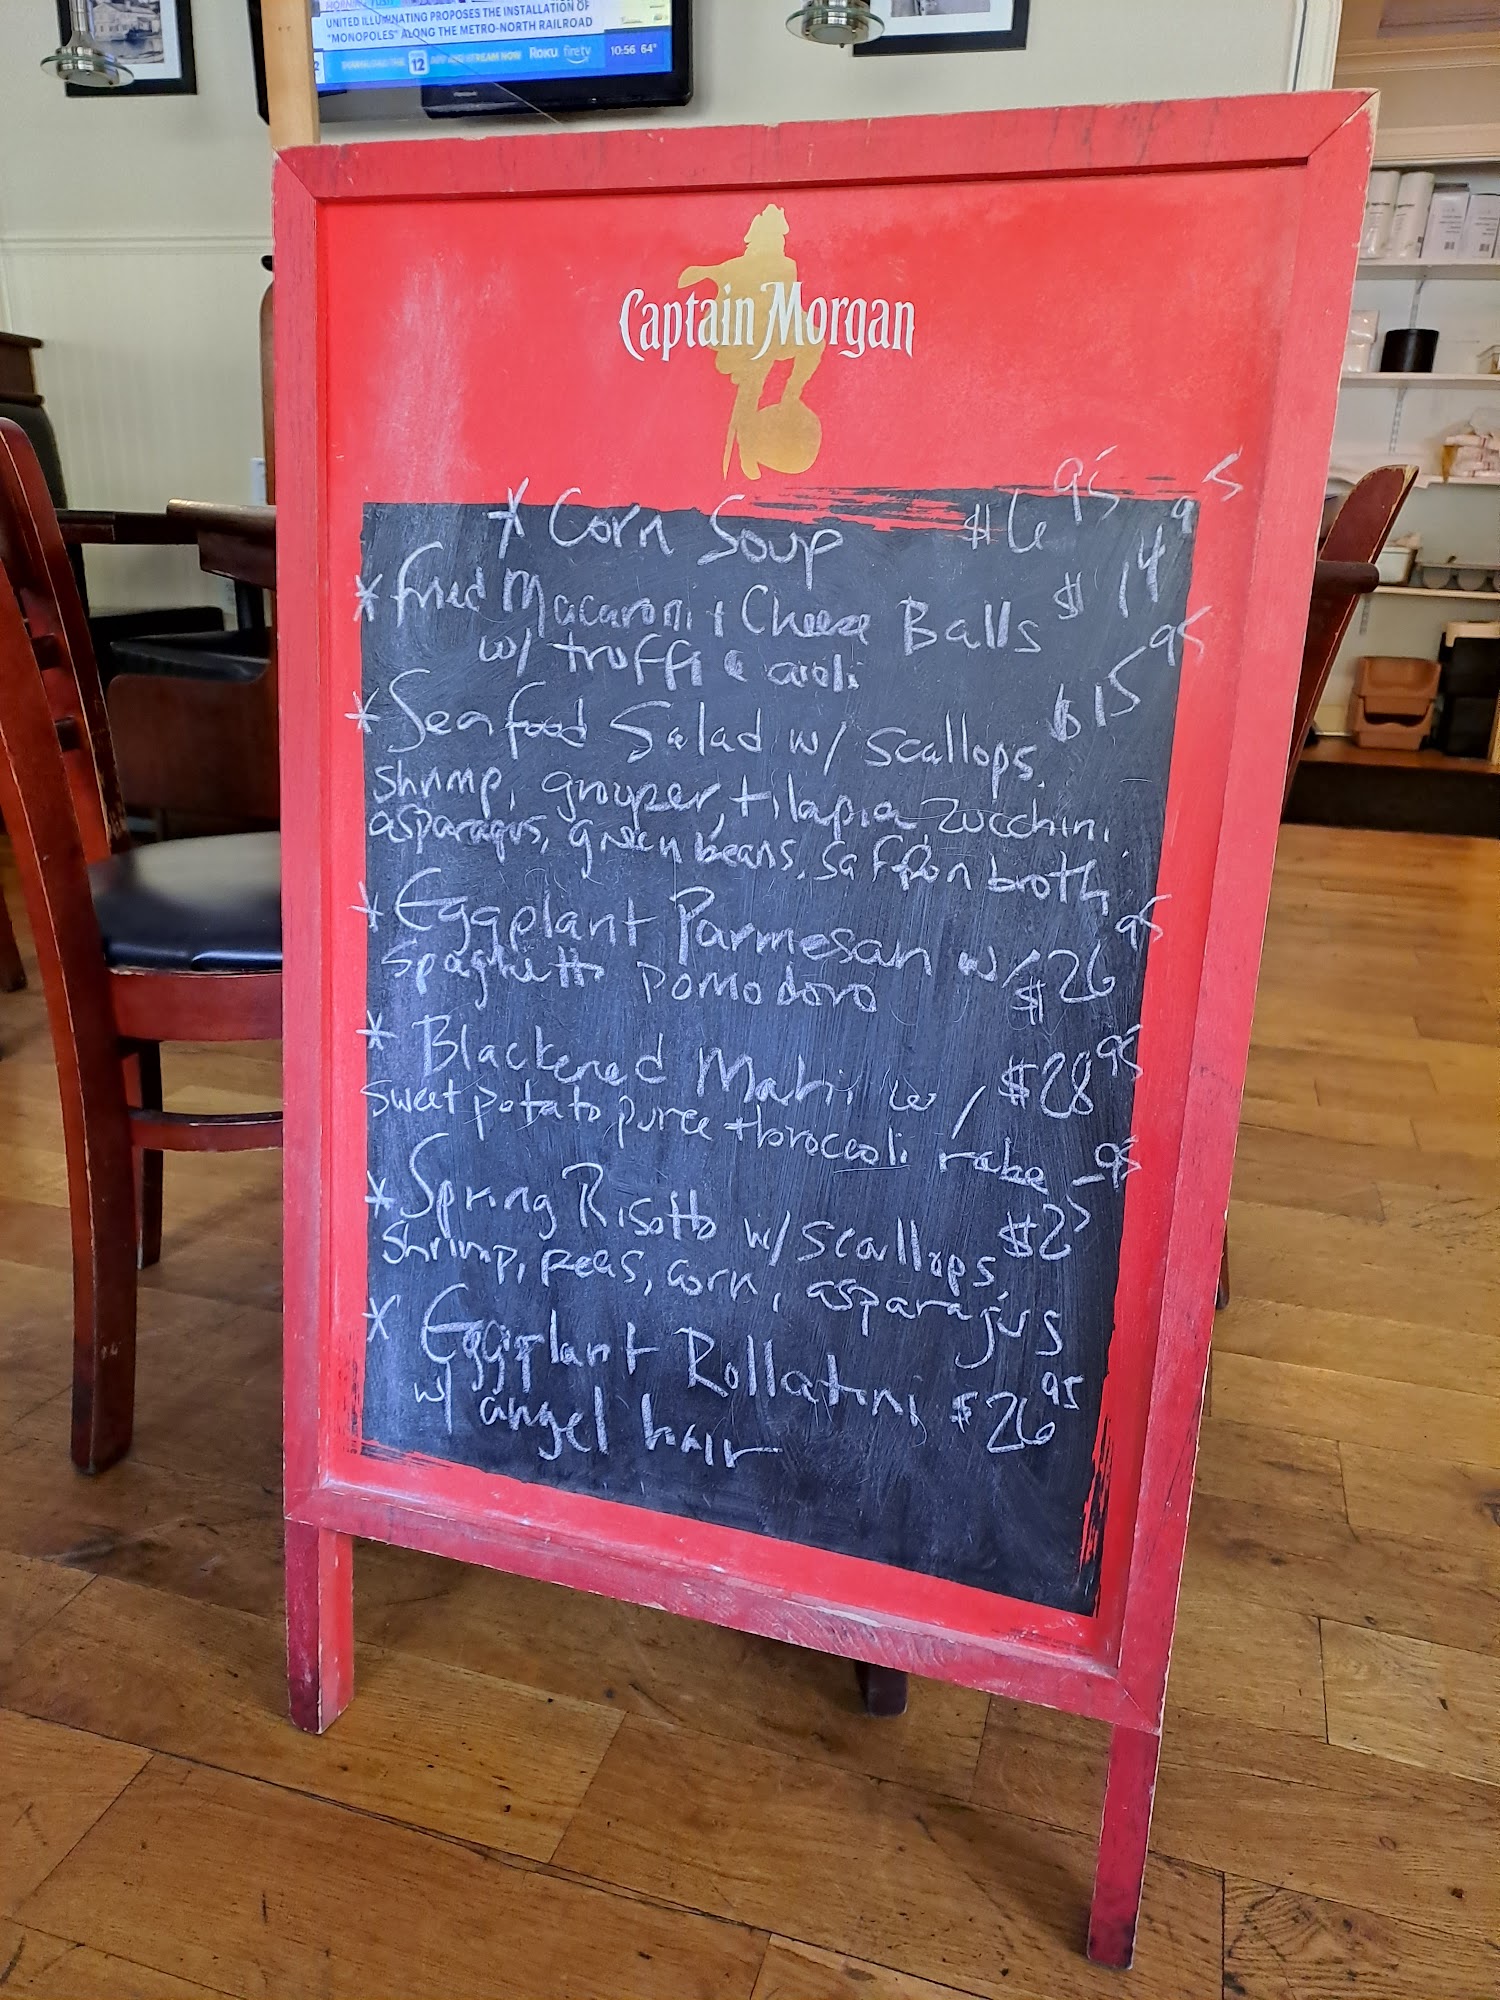 UNITED ILLUMINATING PROPOSES THE INSTALLATION OF
"MONOPOLES" ALONG THE METRO-NORTH RAILROAD
DOWNLOAD THE 12 APP AND STREAM NOW Roku firetv 10:56 64°
Captain Morgan
* Corn Soup $6 95
* Fried Macaroni + Cheese Balls $14 95
w/ truffle aioli
* Seafood Salad w/ scallops, $15 95
shrimp, grouper + tilapia zucchini,
asparagus, green beans, saffron broth
* Eggplant Parmesan w/ $26 95
spaghetti pomodoro $
* Blackened Mahi w/ $28 95
sweet potato puree + broccoli rabe
* Spring Risotto w/ scallops, 95
shrimp, peas, corn, asparagus
* Eggplant Rollatini $26 95
w/ angel hair